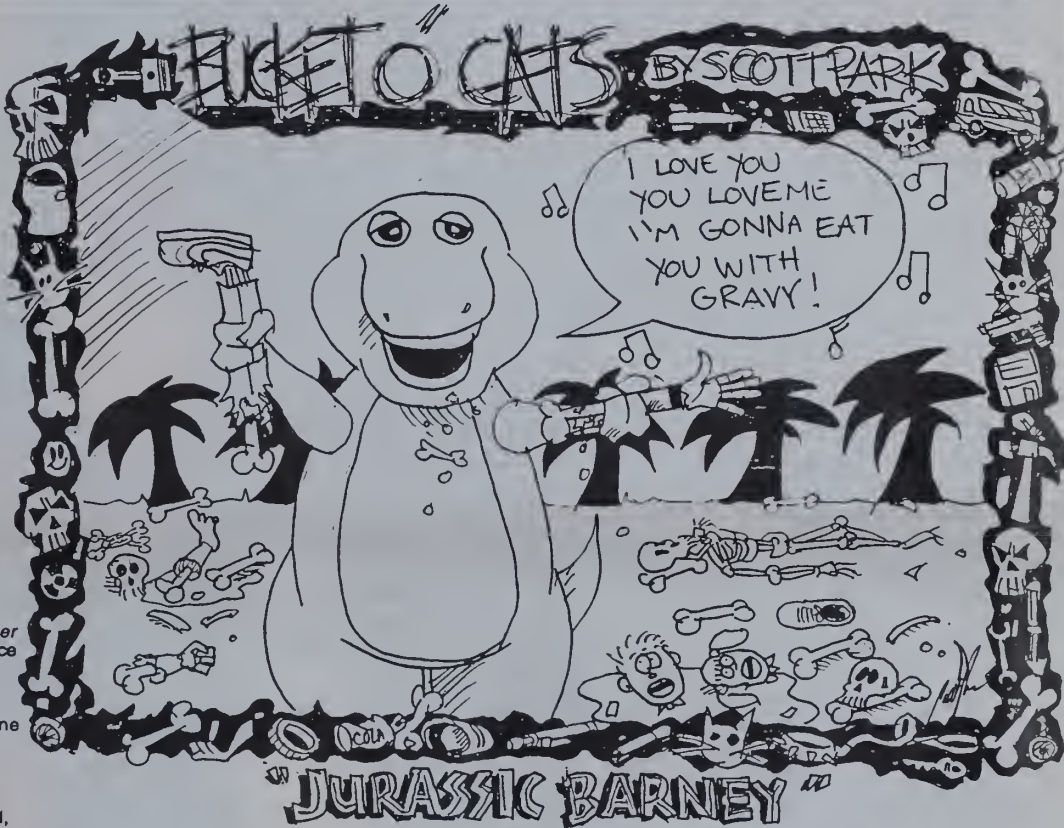 BUCKET O' CATS
BY SCOTT PARK
I LOVE YOU
YOU LOVE ME
I'M GONNA EAT
YOU WITH
GRAVY!
er
ce
ne
COLA
"JURASSIC BARNEY"